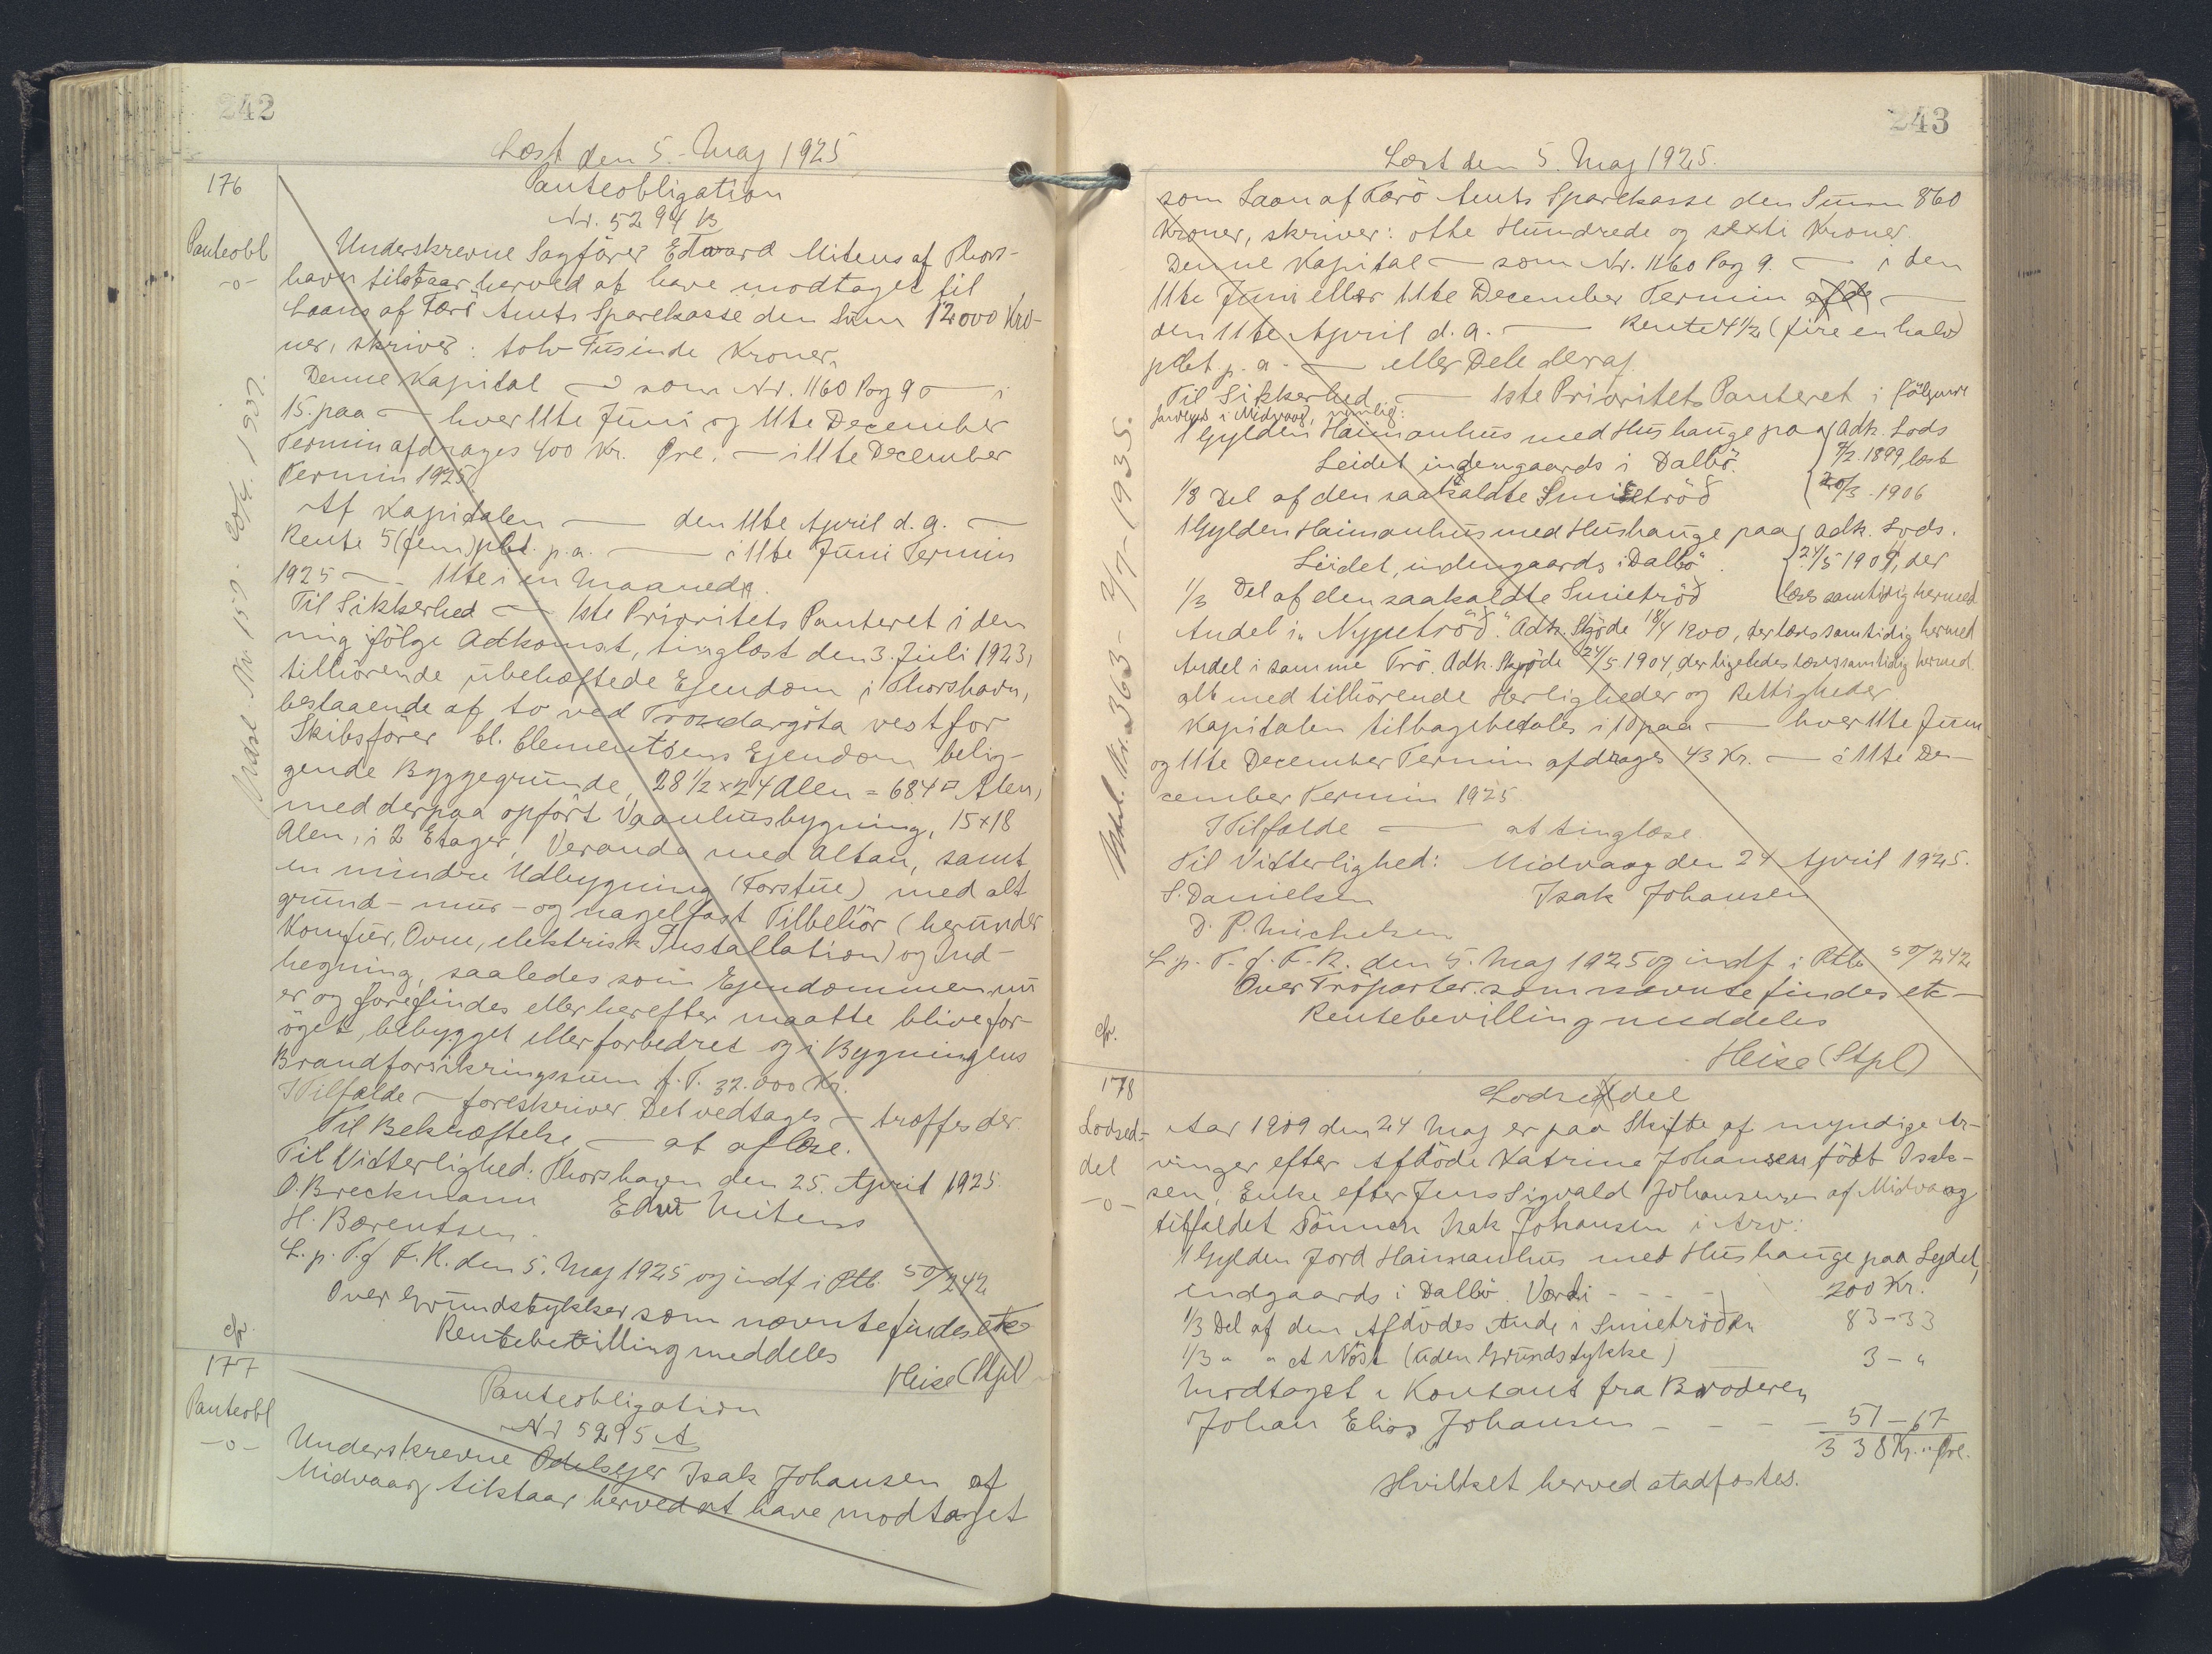 242
Læst den 5. Maj 1925
176
Panteobligation
Nr. 5294 B
Panteobl
-o-
Underskrevne Sagförer Edward Mitens af Thors-
havn tilstaar herved at have modtaget til
Laans af Færö Amts Sparekasse den Sum 12000 Kro-
ner, skriver: tolv Tusinde Kroner.
Denne Kapital — som Nr. 1160 Pag 90 — i
15. paa — hver 11te Juni og 11te December
Termin afdrages 400 Kr. Øre. — i 11te December
Termin 1925.
Af Kapitalen — den 11te April d. a. —
Rente 5 (fem) pCt. p.a. — i 11te Juni Termin
1925 — 11te i en Maaned
Til Sikkerhed — 1ste Prioritets Panteret i den
mig ifölge Adkomst, tinglæst den 3. Juli 1923,
tilhörende ubehæftede Ejendom i Thorshavn,
bestaaende af to ved Trondargöta vest for
Skibsförer Cl. Clementsens Ejendom belig-
gende Byggegrunde, 28 1/2 x 24 Alen = 684 □ Alen,
med derpaa opfört Vaanhusbygning, 15x18
Alen, i 2 Etager, Veranda med Altan, samt
en mindre Udbygning (Forstue) med alt
grund- mur- og nagelfast Tilbehör (herunder
Komfur, Ovne, elektrisk Installation) og Ind-
hegning, saaledes som Ejendommen nu
er og forefindes eller herefter maatte blive for-
öget, bebygget eller forbedret og i Bygningens
Brandforsikringssum f. T. 32.000 Kr.
I Tilfælde — foreskriver. Det vedtages — træffes der.
Til Bekræftelse — at aflæse.
Til Vitterlighed: Thorshavn den 25. April 1925.
O. Breckmann Edw Mitens
H. Bærentsen.
L. p. T. f. F. R. den 5. Maj 1925 og indf i Ptb. 50/242
Over Grundstykker som nævnte findes etc
Rentebevilling meddeles
Heise (Stpl)
cfr.
177
Panteobligation
Nr 5295 A
Panteobl
-o-
Underskrevne Odelsejer Isak Johansen af
Midvaag tilstaar herved at have modtaget
243
Læst den 5. Maj 1925.
som Laan af Færö Amts Sparekasse den Sum 860
Kroner, skriver: otte Hundrede og sexti Kroner.
Denne Kapital — som Nr. 1160 Pag 9. — i den
11te Juni eller 11te December Termin —
den 11te April d. a. — Rente 4 1/2 (fire en halv)
pCt. p. a. — eller Dele deraf.
Til Sikkerhed — 1ste Prioritets Panteret i fölgende
i Midvaag, nemlig:
1 Gylden Haimanhus med Hus hauge paa Adk. Lods
Leidet indengaards i Dalbö. 4/2 1899, læst
1/8 Del af den saakaldte Smietröd 20/3 - 1906
1 Gylden Haimanhus med Hushauge paa Adk. Lods.
Leidet, indengaards i Dalbö. 24/5 1909, der
1/3 Del af den saakaldte Smietröd læses samtidig hermed
Andel i "Nypetröd." Adk. Sköde 18/4 1900, der læses samtidig hermed
Andel i samme Trö. Adk. Sköde 24/5 1904, der ligeledes læses samtidig hermed
alt med tilhörende Herligheder og Rettigheder
Kapitalen tilbagebetales i 10 paa — hver 11te Juni
og 11te December Termin afdrages 43 Kr. — i 11te De-
cember Termin 1925
I Tilfælde — at tinglæse.
Til Vitterlighed: Midvaag den 24 April 1925.
S. Danielsen Isak Johansen
D. P. Michelsen
L. p. T. f. F. R. den 5. Maj 1925 og indf i Ptb 50/242
Over Tröparter som nævnte findes etc —
Rentebevilling meddeles
cfr.
Heise (Stpl)
178
Lodseddel
Lodsed-
del
-o-
Aar 1909 den 24 Maj er paa Skifte af myndige Ar-
vinger efter Afdöde Katrine Johansen födt Isak-
sen, Enke efter Jens Sigvald Johansen af Midvaag
tilfaldet Sönnen Isak Johansen i Arv:
1 Gylden Jord Haimanhus med Hushauge paa Lejdet,
indgaards i Dalbö. Værdi - - - - 200 Kr.
1/3 Del af den Afdödes Andel i Smietröden 83-33
1/3 " " et Nöst (uden Grundstykke) 3 - "
Modtaget i Kontant fra Broderen
Johan Elias Johansen - - - - 51-67
338 Kr. " Øre.
Hvilket herved stadfæstes.